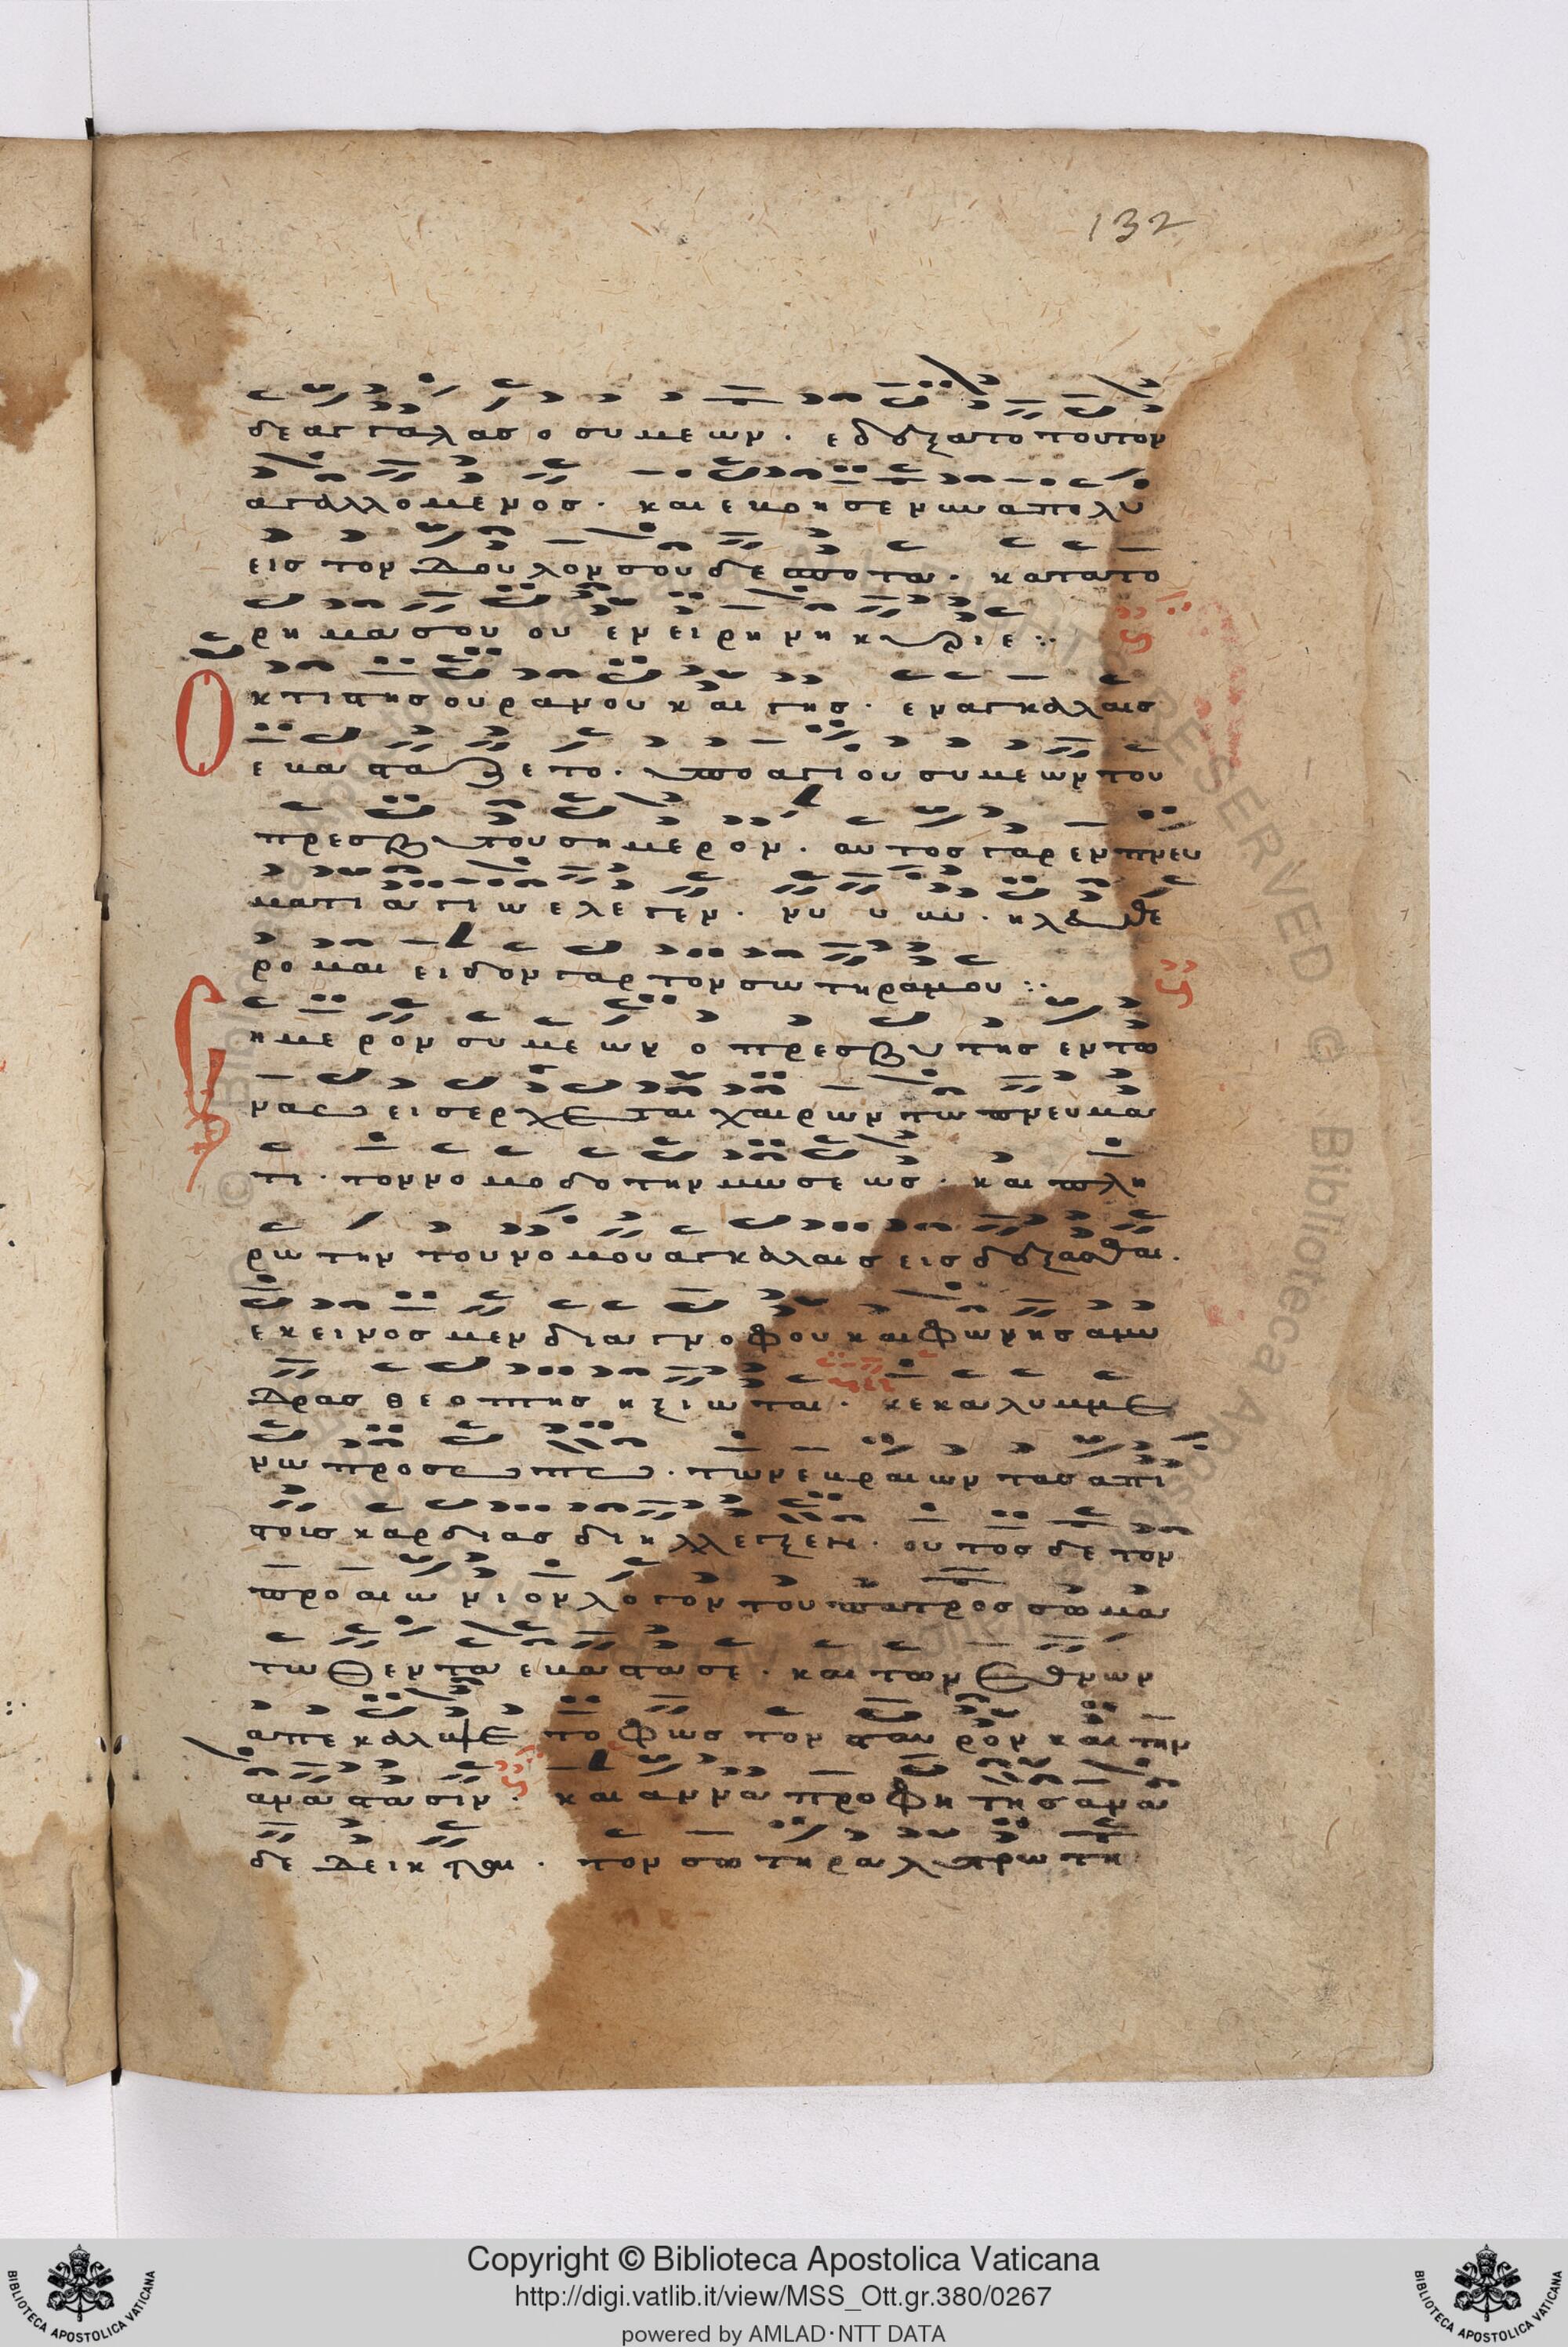 132
δε αγκαλας ο συμεων · εδοξατο τουτον
αγαλλομενος · και εβοησε νυν απολυ
εις τον δουλον σου δεσποτα · κατα το
ρημα σου ου εν ειρηνη κυριε :·
Ο κτιστης ουρανου και γης · εν αγκαλαις
εβασταζετο · υπο αγιου συμεων του
πρεσβυτου σημερον · αυτος γαρ εν πνευ
ματι αγιω ελεγεν · νυν · ηλευθε
ρομαι ειδον γαρ τον σωτηρα μου :·
Σημερον συμεων ο πρεσβυτης εν τω
ναω εισερχεται χαιρων τω πνευμα
τι · τον νομοδοτην μωσεως · και πλη
ρωτην του νομου αγκαλαις εισδοξασθαι ·
εκεινος μεν δια γνοφου και φωνης αμυ
δρας θεοπτης ηξιωται · κεκαλυμμε
νω προσωπω · των εβραιων τας απι
στοις καρδιας διηλλεγξεν · ουτος δε τον
προαιωνιον λογον του πατρος σωμα
τωθεντα εβαστασε · και των εθνων
απεκαλυψε το φως τον σταυρον και την
αναστασιν · και αννα προφητης ανα
δεδεικται · τον σωτηρα λυτρωτη
Copyright © Biblioteca Apostolica Vaticana
http://digi.vatlib.it/view/MSS_Ott.gr.380/0267
powered by AMLAD·NTT DATA
BIBLIOTECA APOSTOLICA VATICANA
BIBLIOTECA APOSTOLICA VATICANA